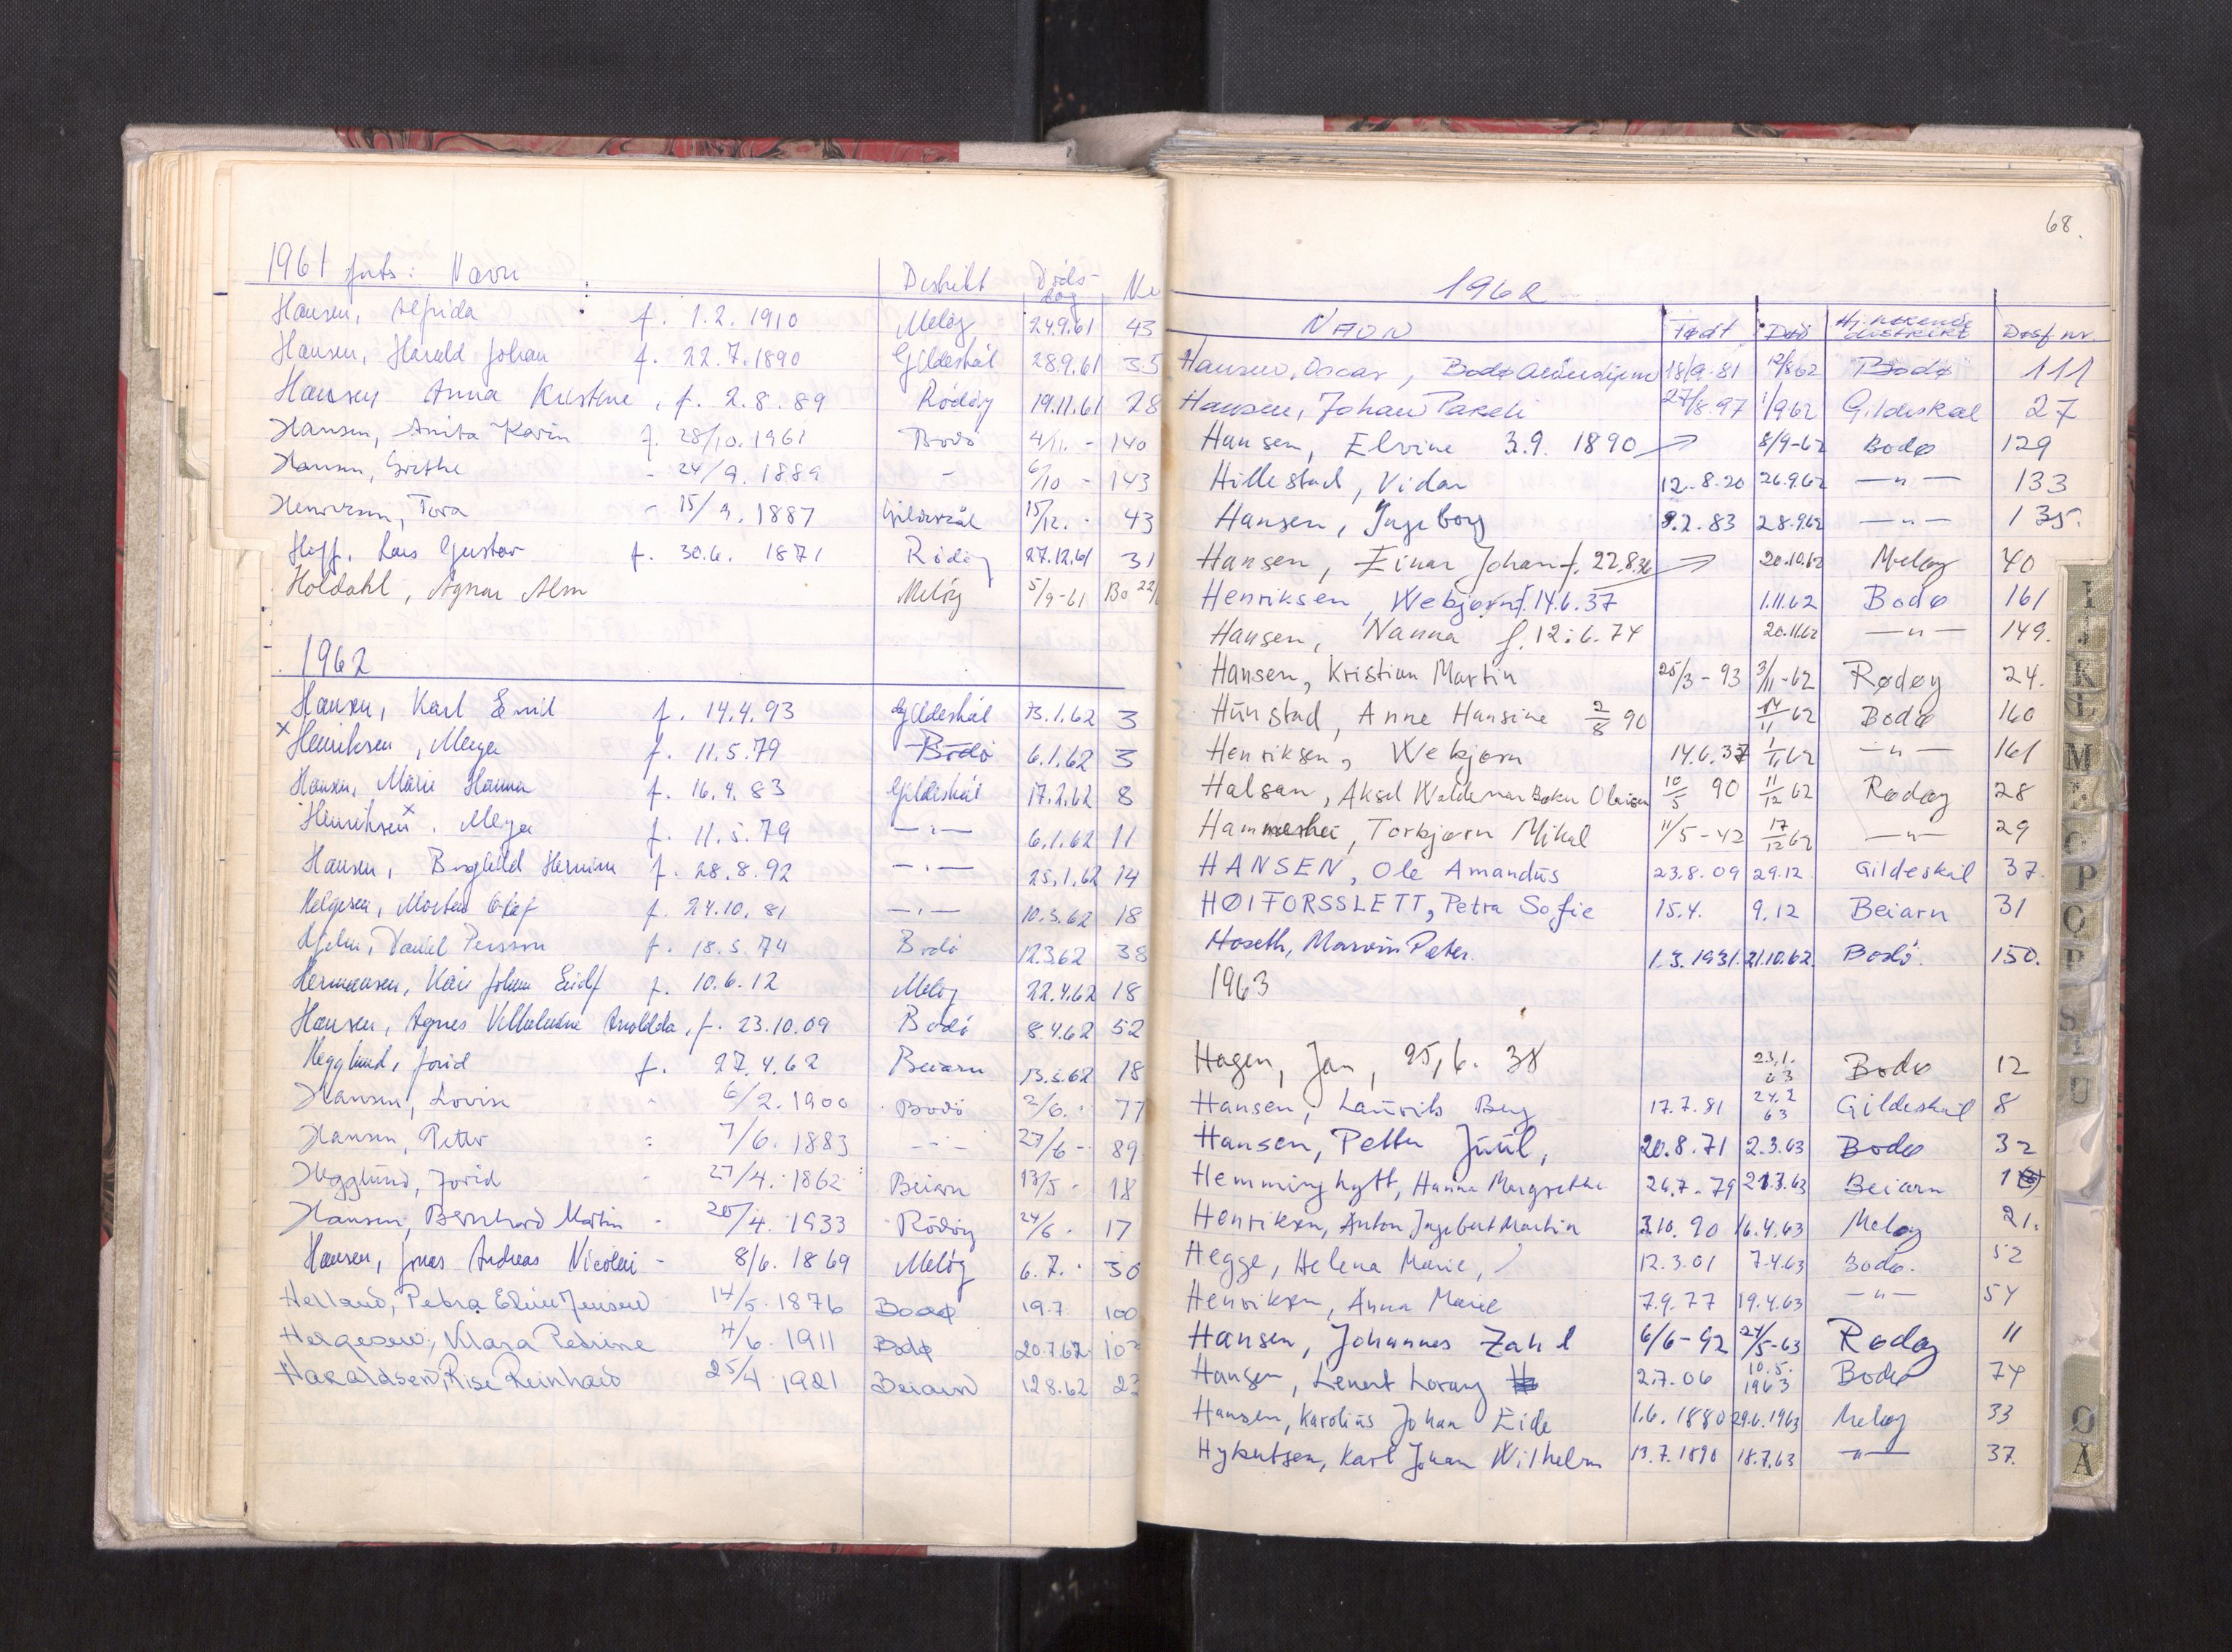 1961 forts: Navn Distrikt Døds-dag Nr
Hansen, Alfrida f. 1.2.1910 Meløy 24.9.61 43
Hansen, Harald Johan f. 22.7.1890 Gildeskål 28.9.61 35
Hansen Anna Kristine, f. 2.8.89 Rödöy 19.11.61 28
Hansen, Anita Karin f. 28/10.1961 Bodö 4/11. - 140
Hansen, Grethe - 24/9.1889 - 6/10 - 143
Henriksen, Tora - 15/9.1887 Gildeskål 15/12. - 43
Hoff, Lars Gustav f. 30.6. 1871 Rödöy 27.12.61 31
Holdahl, Agnar Alm Melöy 5/9-61 Bo
1962
Hansen, Karl Emil f. 14.4.93 Gildeskål 13.1.62 3
x Henriksen, Meyer f. 11.5.79 Bodö 6.1.62 3
Hansen, Marie Hanna f. 16.4.83 Gildeskål 17.2.62 8
Henriksen x, Meyer f. 11.5.79 —"— 6.1.62 11
Hansen, Borghild Hermine f. 28.8.92 —"— 25.1.62 14
Helgesen, Morten Olaf f. 24.10.81 —"— 10.3.62 18
Hjelm, Daniel Persson f. 18.5.74 Bodö 12.3.62 38
Hermansen, Kåre Johan Leidf f. 10.6.12 Melöy 22.4.62 18
Hansen, Agnes f. 23.10.09 Bodö 8.4.62 52
Hegglund, Jorid f. 27.4.62 Beiarn 13.5.62 18
Hansen, Lovise - 6/2.1900 Bodö 2/6. - 77
Hansen, Peter - 7/6.1883 —"— 27/6 - 89
Hegglund, Jorid - 27/4.1862 Beiarn 13/5 - 18
Hansen, Bernhard Martin - 20/4.1933 Rödöy 24/6 - 17
Hansen, Jonas Andreas Nicolai - 8/6.1869 Melöy 6.7. - 30
Helland, Petra Eline Jensen 14/5.1876 Bodø 19.7 100
Helgesen, Klara Petrine 4/6.1911 Bodø 20.7.62 10
Haraldsen, Rise Reinhard 25/4 1921 Beiarn 12.8.62 23
68.
1962
NAVN Født Død Hj.hørende distrikt Dosf nr.
Hansen, Oscar, Bodø 18/9-81 12/8 62 Bodø 111
Hansen, Johan Pareli 27/8.97 1/9 62 Gildeskål 27
Hansen, Elvine 3.9. 1890 8/9-62 Bodø 129
Hillestad, Vidar 12.8.20 26.9.62 —"— 133
Hansen, Ingeborg 9.2.83 28.9.62 —"— 135.
Hansen, Einar Johan f. 22.8.36 20.10.62 Meløy 40
Henriksen, Webjørn f. 14.6.37 1.11.62 Bodø 161
Hansen, Nanna f. 12.6.74 20.11.62 —"— 149.
Hansen, Kristian Martin 25/3-93 3/11-62 Rødøy 24.
Hunstad, Anne Hansine 2/8 90 14/11 62 Bodø 160
Henriksen, Webjørn 14.6.37 1/11 62 —"— 161
Halsan, Aksel Waldemar Olaisen 10/5 90 11/12 62 Rødøy 28
Torbjørn Mikal 11/5-42 17/12 62 —"— 29
HANSEN, Ole Amandus 23.8.09 29.12 Gildeskål 37.
HØIFORSSLETT, Petra Sofie 15.4. 9.12 Beiarn 31
Hoseth, Marvin Peter. 1.3.1931. 21.10.62. Bodö. 150.
1963
Hagen, Jan, 25,6. 38 23.1.63 Bodø 12
Hansen, Laurits Berg 17.7.81 24.2 63 Gildeskål 8
Hansen, Petter Juul, 20.8.71 2.3.63 Bodø 32
Hemminghytt, Hanna Margrethe 26.7-79 21.3.63 Beiarn
Henriksen, Anton Ingebert Martin 3.10.90 16.4.63 Meløy 21.
Hegge, Helena Marie, 12.3.01 7.4.63 Bodø. 52
Henriksen, Anna Marie 7.9.77 19.4.63 —"— 54
Hansen, Johannes Zahl 6/6-92 24/5-63 Rødøy 11
Hansen, Lenert Lorang 2.7.06 10.5.1963 Bodø 74
Hansen, Karolius Johan Eide 1.6.1880 29.6.1963 Meløy 33
Hykutsen, Karl Johan Wilhelm 13.7.1890 18.7.63 —"— 37.
I
J
K
L
M
N
O
P
O
P
S
T
U
Ø
Å